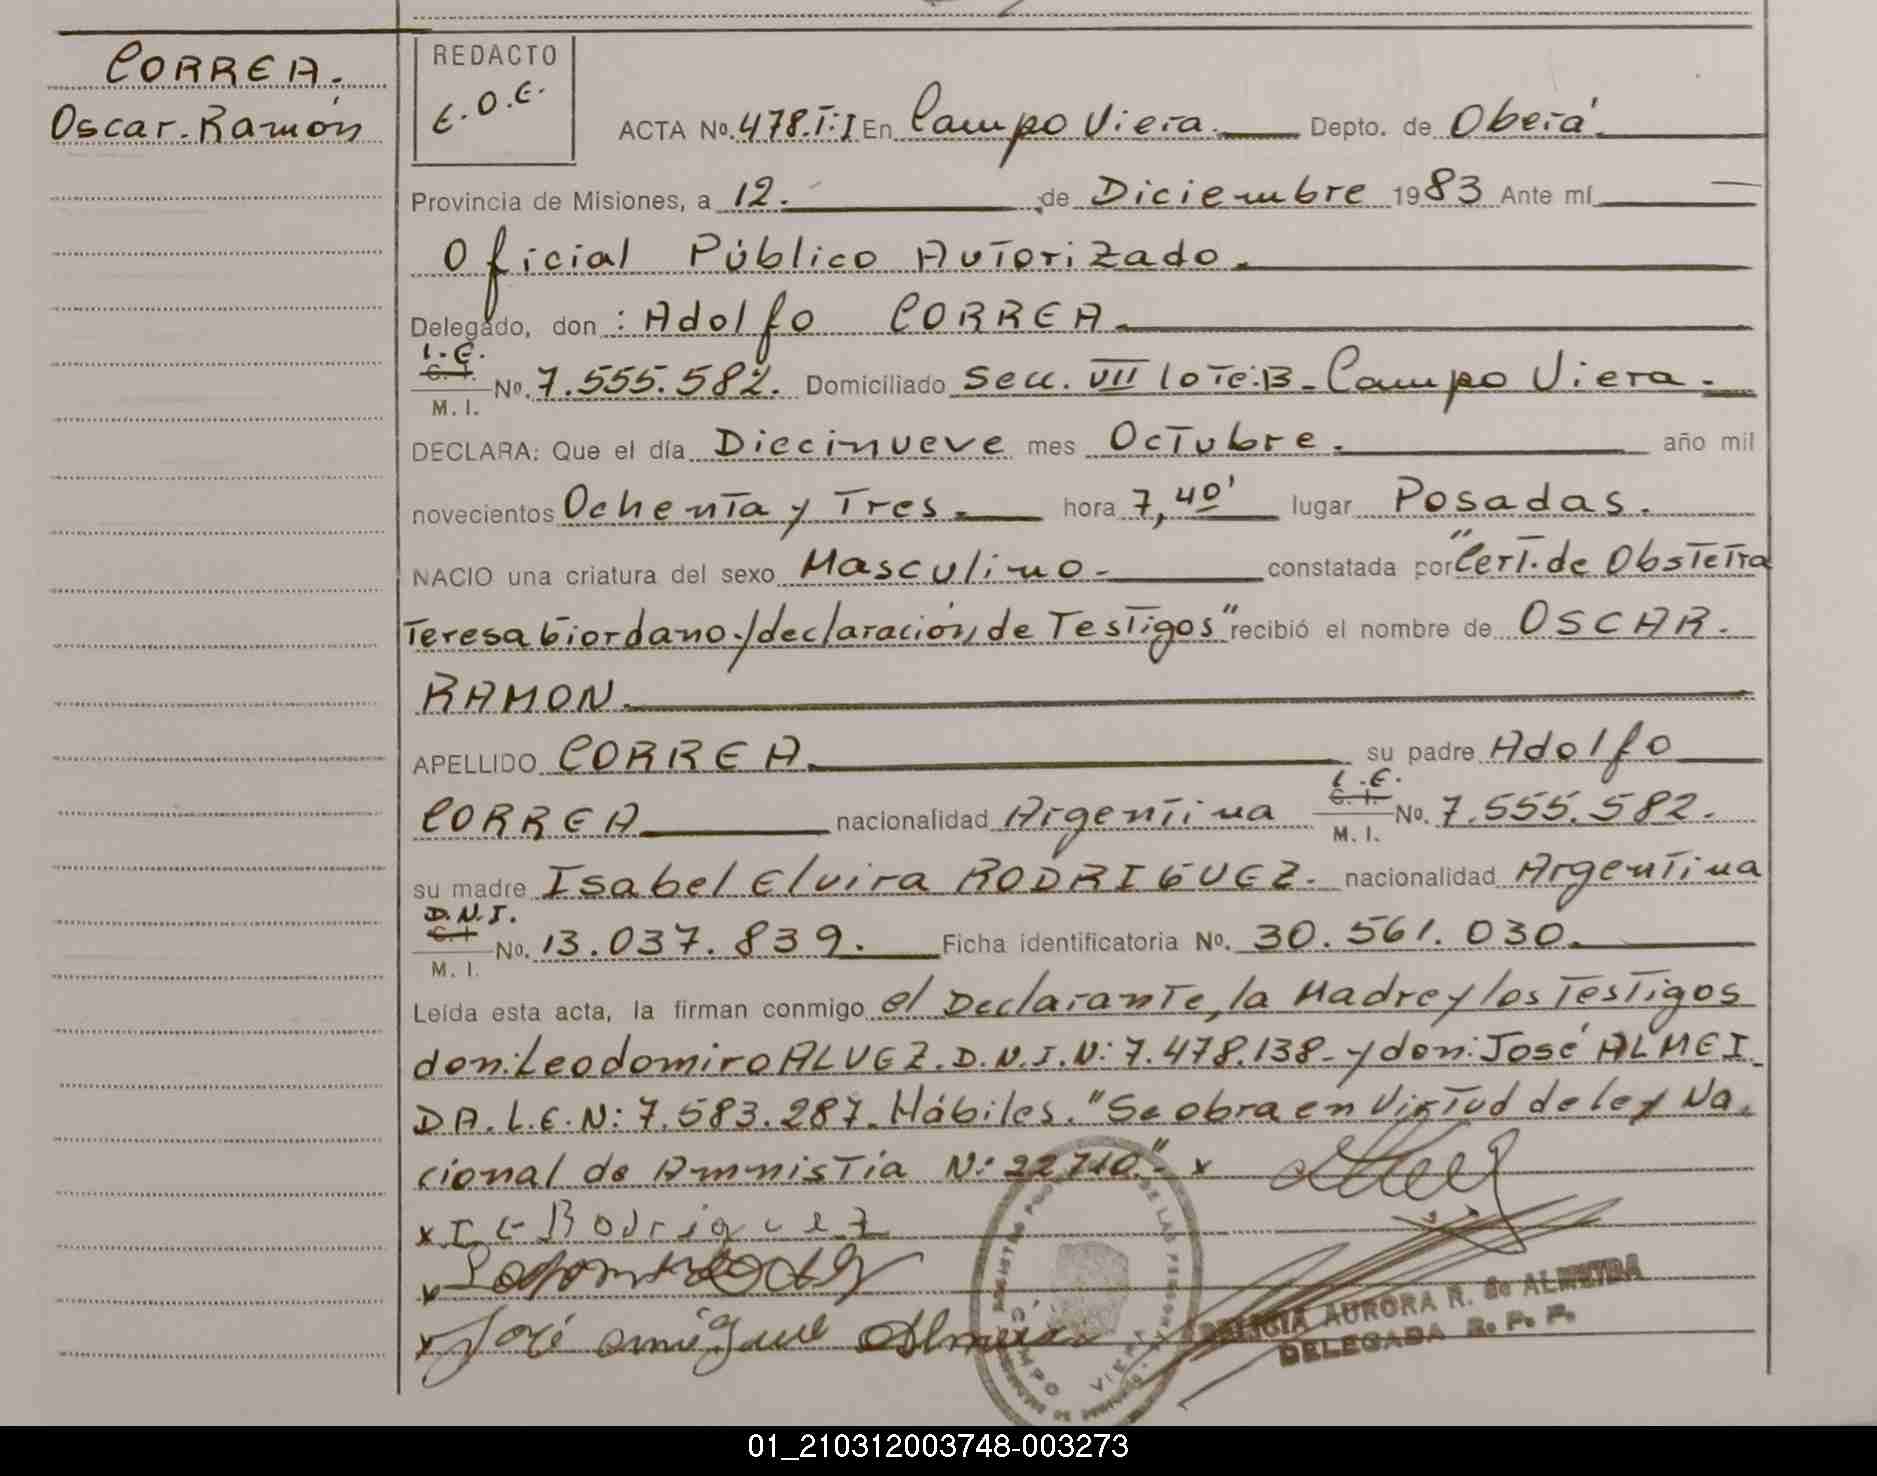 CORREA.
Oscar. Ramón
REDACTO
E.O.E.
ACTA No. 478.T:I En Campo Viera. Depto. de Oberá.
Provincia de Misiones, a 12. de Diciembre 1983 Ante mí
Oficial Público Autorizado.
Delegado, don : Adolfo CORREA
L.E.
C. I.
M. I.
No. 7.555.582. Domiciliado Secc. VII lote:B - Campo Viera.
DECLARA: Que el día Diecinueve mes Octubre. año mil
novecientos Ochenta y Tres. hora 7,40' lugar Posadas.
NACIO una criatura del sexo Masculino - constatada por "Cert. de Obstetra
Teresa Giordano./declaración de Testigos" recibió el nombre de OSCAR.
RAMON.
APELLIDO CORREA su padre Adolfo
CORREA nacionalidad Argentina L.E. C. I. M. I. No. 7.555.582.
su madre Isabel Elvira RODRIGUEZ. nacionalidad Argentina
D.N.I.
C. I.
M. I.
No. 13.037.839. Ficha identificatoria No. 30.561.030.
Leída esta acta, la firman conmigo el Declarante, la Madre y los Testigos
don: Leodomiro ALVEZ. D.N.I.N: 7.478.138 - y don: José ALMEI
DA. L.E.N: 7.583.287. Hábiles. "Se obra en Virtud de ley Na.
cional de Amnistia N: 22710." x
x I E Rodriguez
x
x José Almeida
CAMPO VIERA
DELICIA AURORA R. de ALMEYDA
DELEGADA R. P. P.
01_210312003748-003273